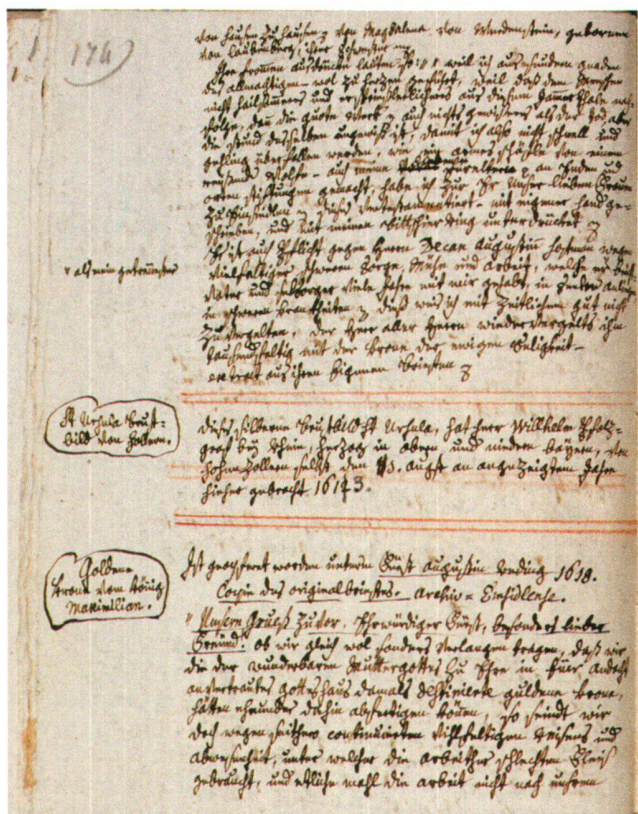 174
von Hausen zu Hausen von Magdalena von Wiedenstein, geborenen
von Landenberg, ihrer Schwester
Ihre frommen ausdrücke lauten so: weil ich aus sonderen gnaden
des allmächtigen wol zu herzen geführt, weil das dem Menschen
nicht heilsamers und ersprießlicheres aus diesem Jammerthale nach
folge, dan die guote werk auch nichts gewissers als der Tod, aber
die stund desselben ungewiß ist, damit ich also nicht schnell und
gehling überfallen werde, wie ein armes schäflein von einem
reissende Wolfe - auch meine voreltern an Enden und
orten stiftungen gemacht, habe ich zur Ehr Unser lieben Frauen
zu Einsidlen dises vertestamentiert - mit eigener hand ge-
schrieben, und mit meinen bittschier ring unterdrücket
Ist auch Pflicht gegen Herrn Decan Augustin Hofman wegen
vielfaltiger schweren Sorge, Mühe und arbeit, welche er
v als mein getreüester
Vater und viele Jahre mit mir gehabt, in
in schweren krankheiten dieß was ich mit Zeitlichem gut nicht
zu vergelten, der Herr aller Herren wiedervergelts ihm
tausendfaltig mit der krone der ewigen Seligkeit -
extract aus ihren eigenen briefen
St Ursula brust-
bild von Zollern.
dieses silberne Brustbild St Ursula, hat herr Willhelm Pfalz-
graf bey Rhein, Herzog in obern und niedern bayern, von
hohenzollern selbst den 13. augst an angezeigtem Jahre
hieher gebracht 1613.
Goldene
krone vom könig
Maximilian.
Ist geopfert worden unterm Fürst augustin Reding 1618.
Copia des originalbriefes. archiv = Einsidlense.
" Unsern Grueß zuvor. Ehrwürdiger Fürst, besonders lieber
Freünd! ob wir gleich wol sonders verlangen tragen, daß wir
die der wunderbaren Muttergottes zu Ehre in Euer andacht
anvertrautes gotteshaus damals destinierte guldene krone,
hätten ehender dahin abfertigen können, so seindt wir
doch wegen seithero continuierten villfeltigen reisens und
abwesenheit, unter welcher die arbeither schlechten fleiß
gebraucht, und etliche mahl die arbeit nicht nach unsrem